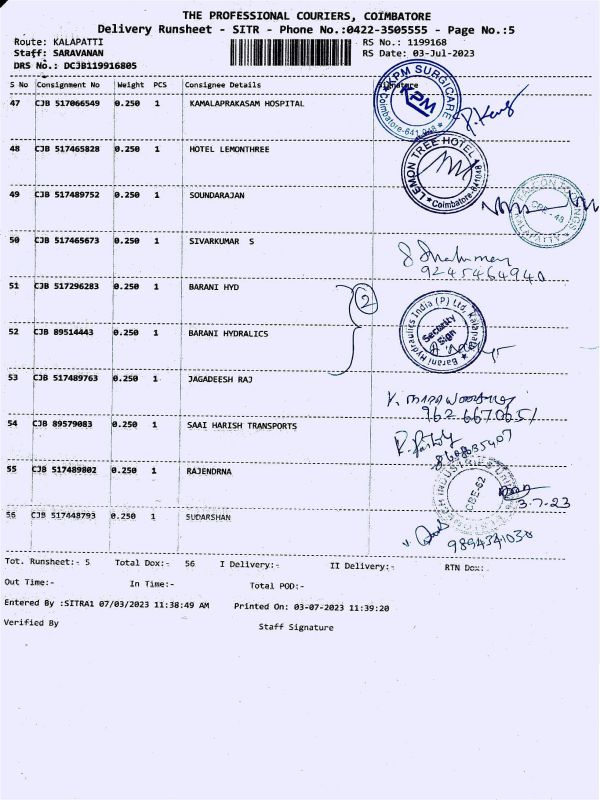 THE PROFESSIONAL COURIERS, COIMBATORE
Delivery Runsheet - SITR - Phone No.:0422-3505555 - Page No.:5
Route: KALAPATTI RS No.: 1199168
Staff: SARAVANAN RS Date: 03-Jul-2023
DRS No.: DCJB119916805
S No Consignment No Weight PCS Consignee Details Signature
47 CJB 517066549 0.250 1 KAMALAPRAKASAM HOSPITAL
KPM SURGICARE
KPM
Coimbatore-641 048
48 CJB 517465828 0.250 1 HOTEL LEMONTHREE
LEMON TREE HOTEL
Coimbatore-641048
49 CJB 517489752 0.250 1 SOUNDARAJAN
CBE - 48
50 CJB 517465673 0.250 1 SIVARKUMAR S
9245464940
51 CJB 517296283 0.250 1 BARANI HYD
2
52 CJB 89514443 0.250 1 BARANI HYDRALICS
Barani Hydraulics India (P) Ltd,
Security
Sign
53 CJB 517489763 0.250 1 JAGADEESH RAJ
9626670651
54 CJB 89579083 0.250 1 SAAI HARISH TRANSPORTS
55 CJB 517489802 0.250 1 RAJENDRNA
CBE-62
3.7.23
56 CJB 517448793 0.250 1 SUDARSHAN
9894341030
Tot. Runsheet:- 5 Total Dox:- 56 I Delivery:- II Delivery:- RTN Dox:-
Out Time:- In Time:- Total POD:-
Entered By :SITRA1 07/03/2023 11:38:49 AM Printed On: 03-07-2023 11:39:20
Verified By Staff Signature